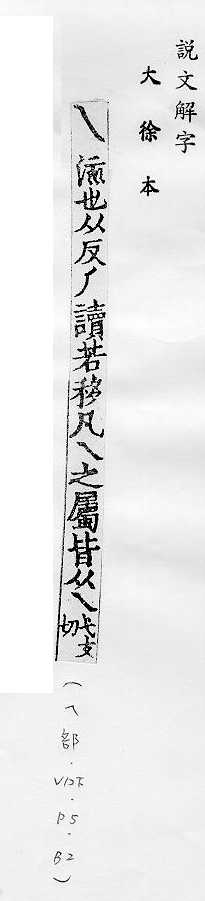 說文解字
大徐本
乀流也从反丿讀若移凡乀之屬皆从乀弋支切
(乀部.V12下.P5.B2)